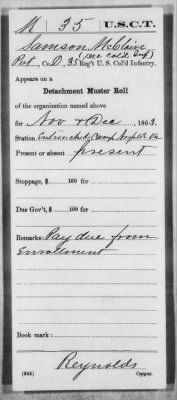 M 35 U.S.C.T.
Samson McClaine
(1 NC Cold Inf)
Pvt, Co. D, 35 Reg't U. S. Col'd Infantry.
Appears on a
Detachment Muster Roll
of the organization named above
for Nov & Dec, 1863.
Station Entrenched Camp Norfolk Va
Present or absent present
Stoppage, $ 100 for
Due Gov't, $ 100 for
Remarks: Pay due from
Enrollment
Book mark:
Reynolds
(364) Copyist.